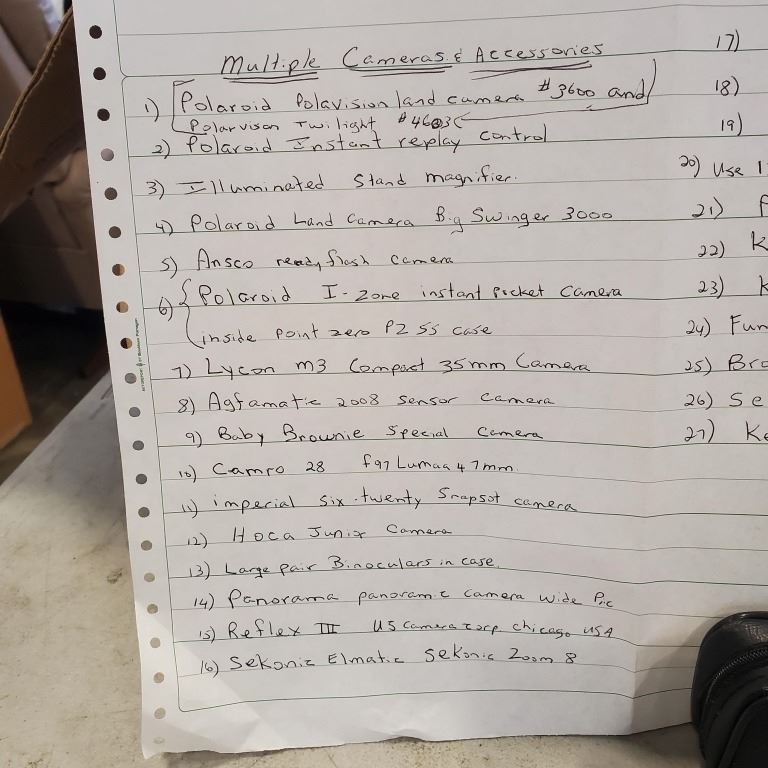 Multiple Cameras & Accessories
1) Polaroid Polavision land camera #3600 and
Polarvison Twilight #4603
2) Polaroid Instant replay control
3) Illuminated Stand magnifier.
4) Polaroid Land Camera Big Swinger 3000
5) Ansco ready flash camera
6) Polaroid I-Zone instant pocket camera
inside point zero PZ 55 case
7) Lycon m3 Compact 35mm Camera
8) Agfamatic 2008 sensor camera
9) Baby Brownie Special camera
10) Camro 28 f97 Lumaa 47mm
11) imperial six-twenty Snapsot camera
12) Hoca Junix Camera
13) Large pair Binoculars in case.
14) Panorama panoramic camera wide Pic
15) Reflex III US camera corp chicago USA
16) Sekonic Elmatic Sekonic Zoom 8
17)
18)
19)
20) Use
21)
22) K
23) K
24) Fun
25) Bro
26) Se
27) Ko